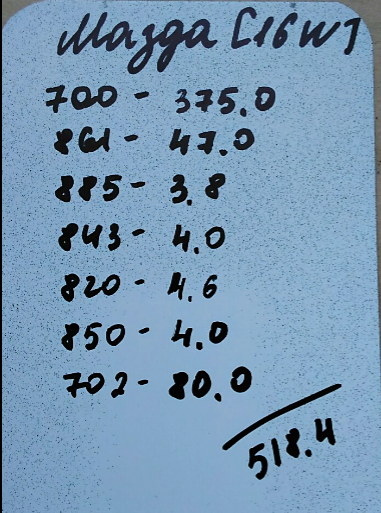 Мазда [16W]
700 - 375.0
861 - 47.0
885 - 3.8
843 - 4.0
820 - 4.6
850 - 4.0
702 - 80.0
518.4